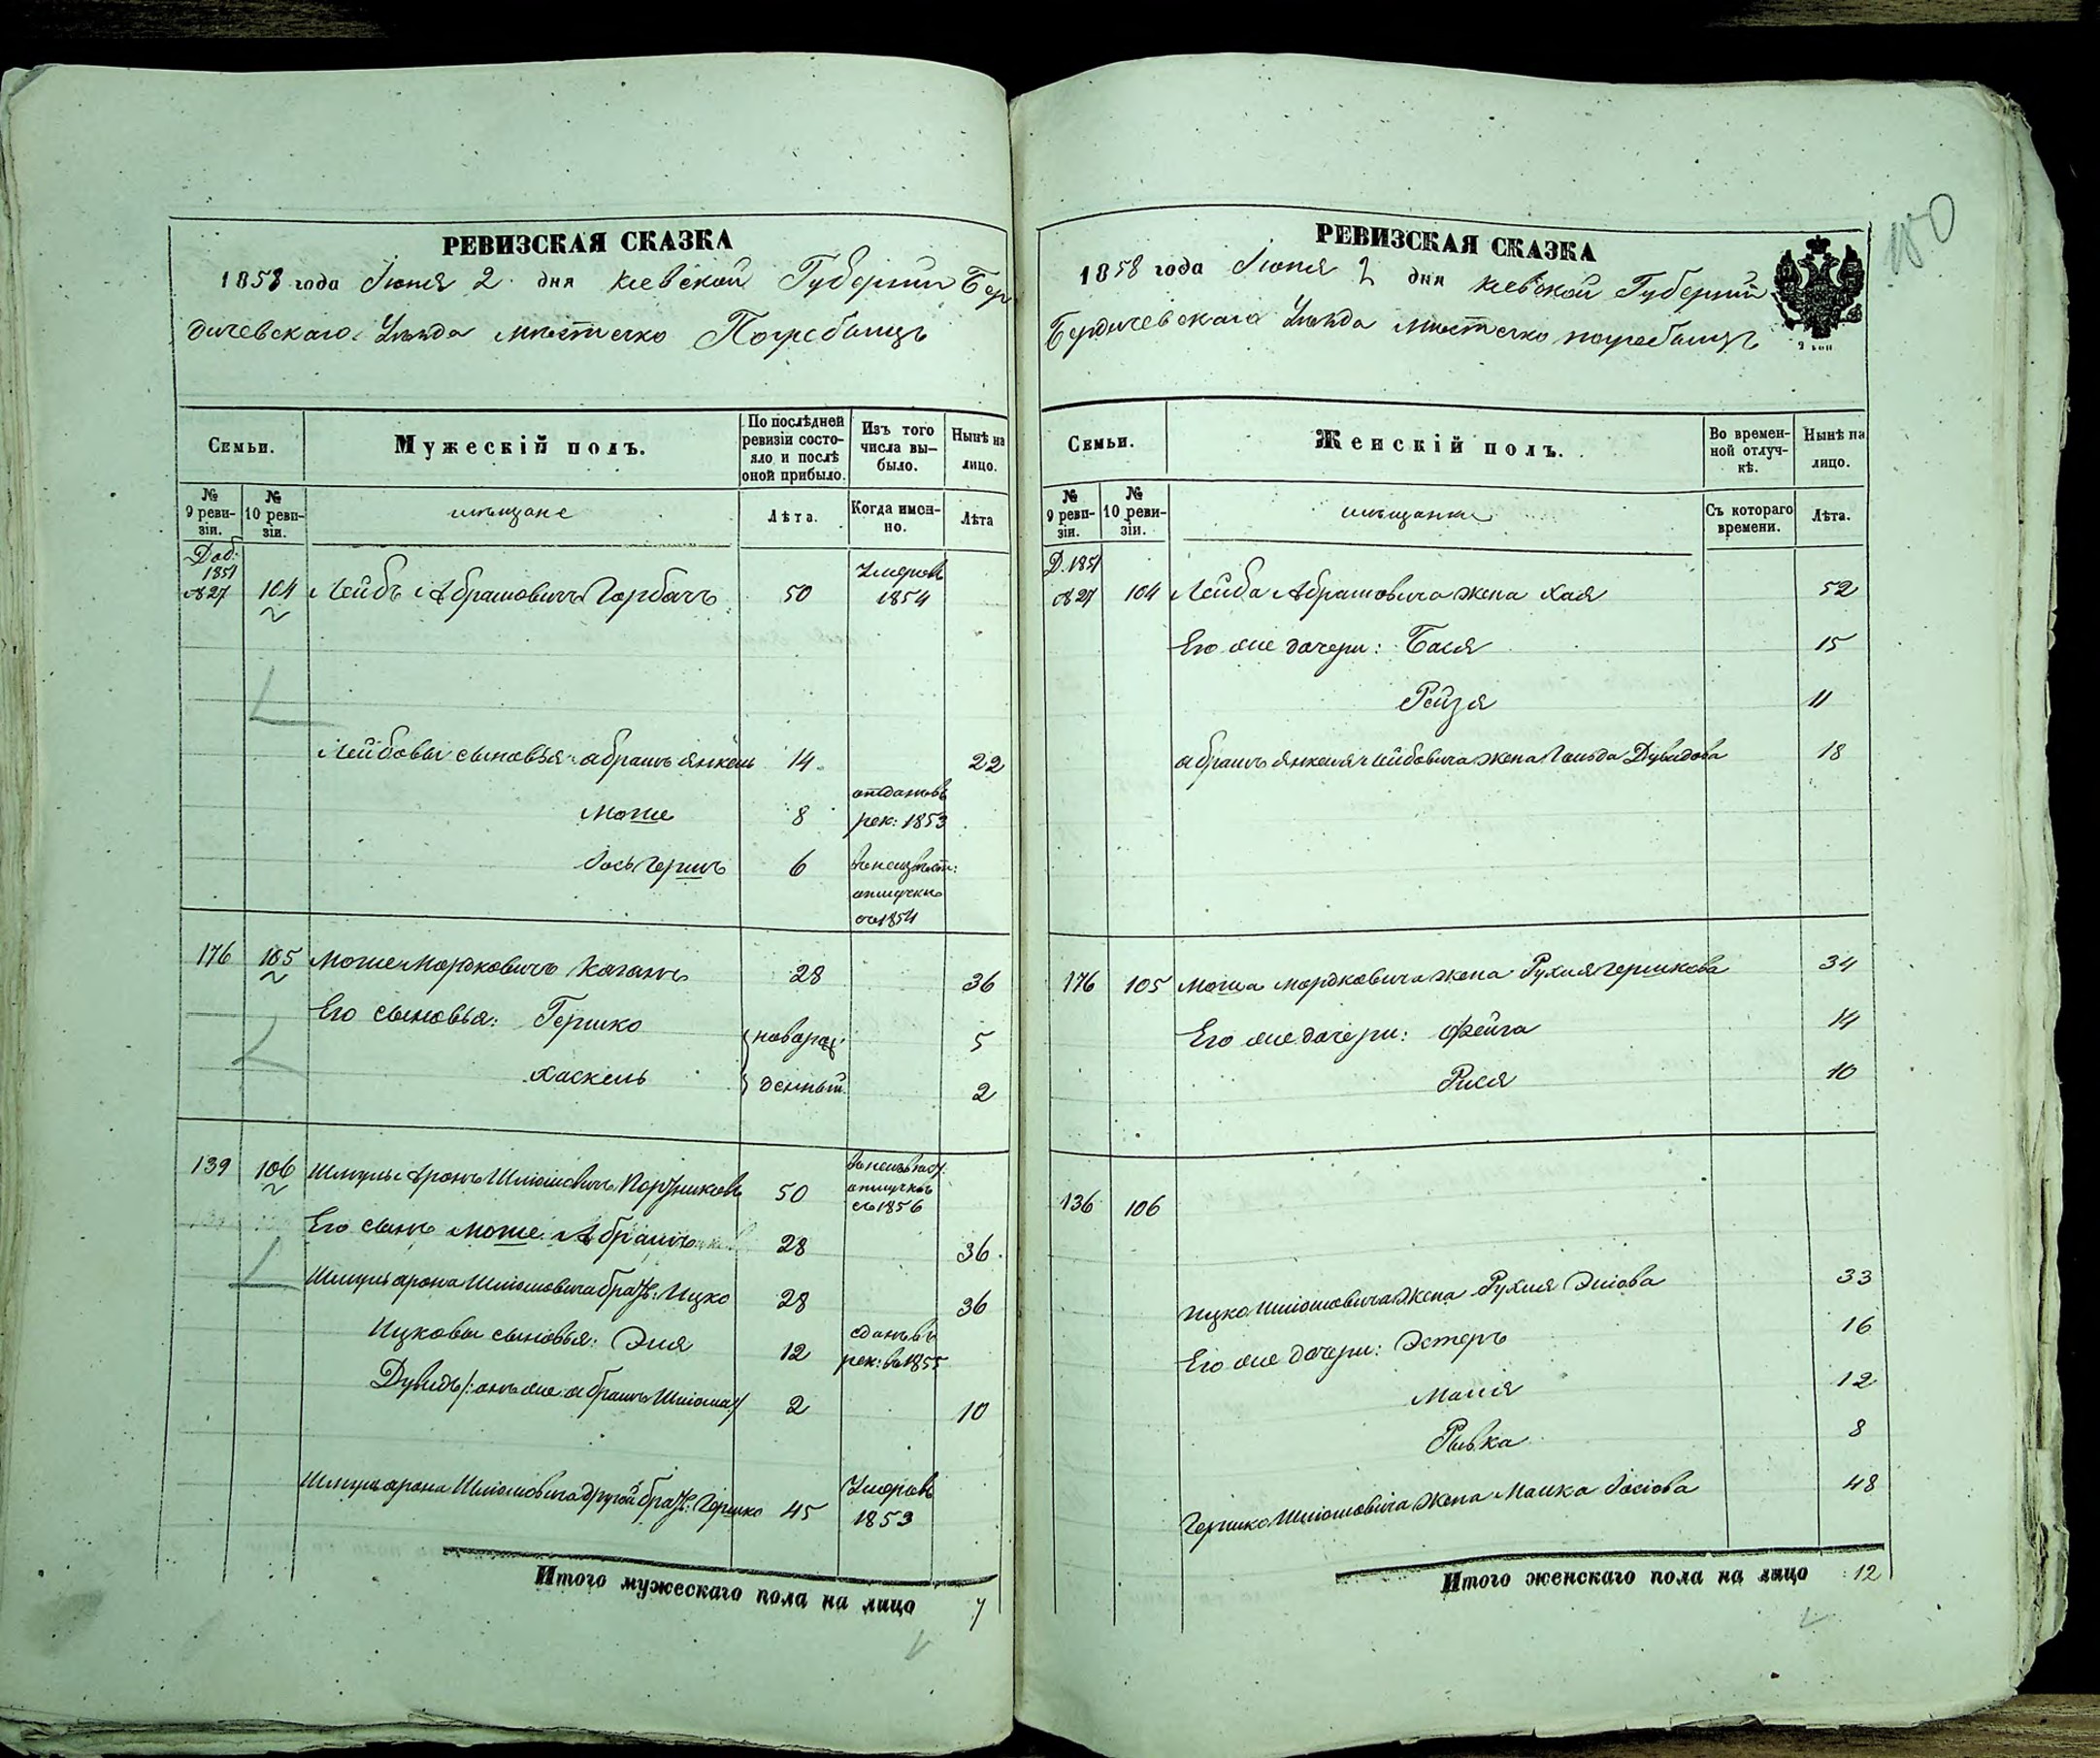 РЕВИЗСКАЯ СКАЗКА
1858 года Іюня 2 дня Кіевской Губерніи Бер
дичевскаго Уѣзда мѣстечко Погребищъ
Семьи.
Мужескій полъ.
По послѣдней ревизіи состояло и послѣ оной прибыло.
Изъ того числа вы-было.
Нынѣ на лицо.
№ 9 реви-зіи.
№ 10 реви-зіи.
мѣщане
Лѣта.
Когда имен-но.
Лѣта
Доб. 1851 №27 104 Лейбъ Абрамовичъ Горбачъ 50 Умеръ 1854
Лейбовы сыновья Абрамъ Янкель 14 22
Моше 8 отданъ въ рек: 1853
Іось Гершъ 6 въ неизвѣст: отлучкѣ съ 1854
176 105 Моше Мордковичъ Каганъ 28 36
Его сыновья: Гершко новорож 5
Хаскель денный 2
139 106 Шмуль Аронъ Шліомовичъ 50 отлучкѣ съ 1856
Его сынъ Моше Абрамъ 28 36
Шмуль Арона Шліомовича братъ: Ицко 28 36
Ицковы сыновья: Эля 12 сданъ въ рек: въ 1855
Дувидъ /: онъ же Абрамъ Шліома :/ 2 10
Шмуль Арона Шліомовича другой братъ: Гершко 45 Умеръ 1853
Итого мужескаго пола на лицо 7
180
РЕВИЗСКАЯ СКАЗКА
1858 года Іюня 2 дня Кіевской Губерніи
Бердичевскаго Уѣзда мѣстечко Погребищъ
Семьи.
Женскій полъ.
Во времен-ной отлуч-кѣ.
Нынѣ на лицо.
№ 9 реви-зіи.
№ 10 реви-зіи.
мѣщанки
Съ котораго времени.
Лѣта.
Д. 1851 №27 104 Лейба Абрамовича жена Хая 52
Его же дочери: Бася 15
Рейзя 11
Абрамъ Янкеля Лейбовича жена Гольда Дувидова 18
176 105 Моша Мордковича жена Рухля Гершкова 34
Его же дочери: Фейга 14
Рися 10
136 106
Ицко Шліомовича жена Рухля Эліова 33
Его же дочери: Эстеръ 16
Малія 12
Рывка 8
Гершко Шліомовича жена Малка Іосіова 48
Итого женскаго пола на лицо 12